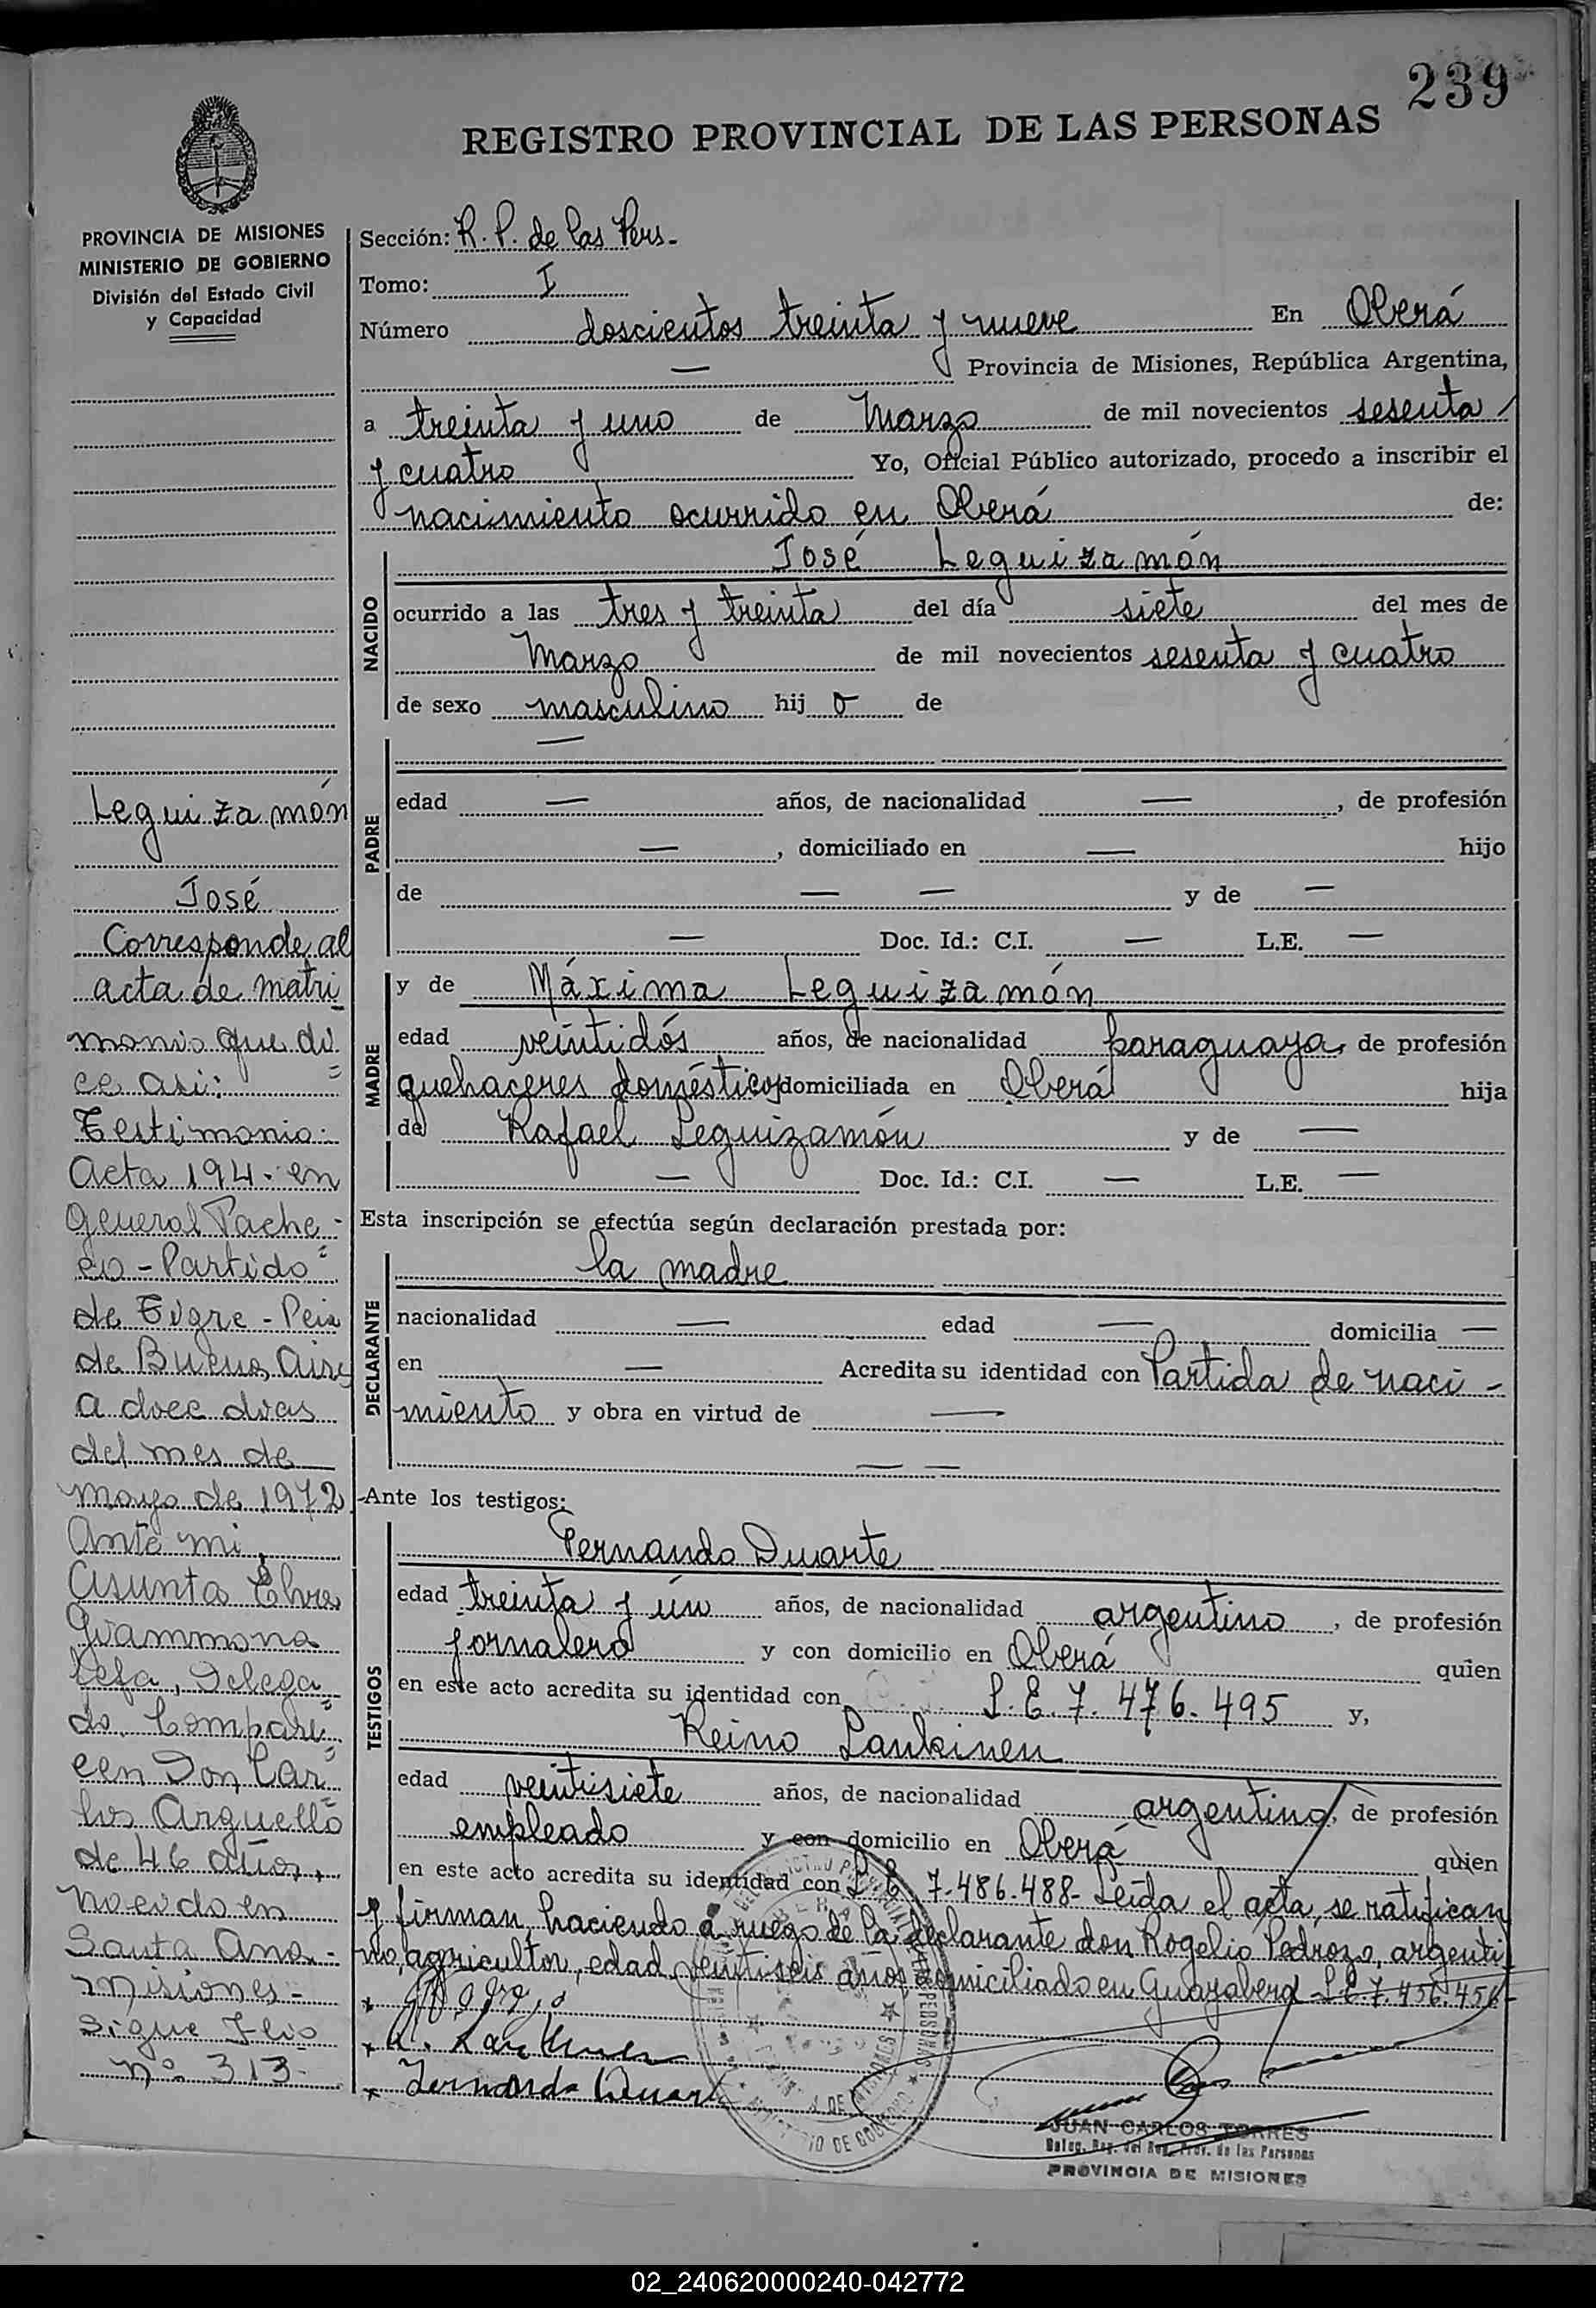 239
REGISTRO PROVINCIAL DE LAS PERSONAS
PROVINCIA DE MISIONES
MINISTERIO DE GOBIERNO
División del Estado Civil
y Capacidad
Leguizamón
José
Corresponde al
acta de matri
monio que di
ce asi:
Testimonio:
Acta 194- en
General Pache-
co - Partido
de Tigre - Pcia
de Buenos Aires
a doce dias
del mes de
mayo de 1972
Ante mi,
Asunta Elvira
Giammona
Jefa, Delega
do. Compare
cen Don Car
los Arguello
de 46 años,
nacido en
Santa Ana -
misiones -
Sigue Flio
nº 313-
Sección: R. P. de las Pers.
Tomo: I
Número doscientos treinta y nueve En Oberá
— Provincia de Misiones, República Argentina,
a treinta y uno de Marzo de mil novecientos sesenta
y cuatro Yo, Oficial Público autorizado, procedo a inscribir el
nacimiento ocurrido en Oberá de:
NACIDO
José Leguizamón
ocurrido a las tres y treinta del día siete del mes de
Marzo de mil novecientos sesenta y cuatro
de sexo masculino hij o de
PADRE
—
edad — años, de nacionalidad —, de profesión
—, domiciliado en — hijo
de — — y de —
— Doc. Id.: C.I. — L.E. —
MADRE
y de Máxima Leguizamón
edad veintidós años, de nacionalidad paraguaya, de profesión
quehaceres domésticos domiciliada en Oberá hija
de Rafael Leguizamón y de —
— Doc. Id.: C.I. — L.E. —
Esta inscripción se efectúa según declaración prestada por:
DECLARANTE
la madre
nacionalidad — edad — domicilia —
en — Acredita su identidad con Partida de naci-
miento y obra en virtud de —
— —
Ante los testigos:
TESTIGOS
Fernando Duarte
edad treinta y ún años, de nacionalidad argentino, de profesión
jornalero y con domicilio en Oberá quien
en este acto acredita su identidad con L.E. 7.476.495 y,
Reino Lankinen
edad veintisiete años, de nacionalidad argentino, de profesión
empleado y con domicilio en Oberá quien
en este acto acredita su identidad con L.E. 7.486.488- Leída el acta, se ratifican
y firman, haciendo a ruego de la declarante don Rogelio Pedrozo, argenti
no, agricultor, edad veintiseis años domiciliado en Guayabera L.E. 7.456.456-
Fernando Duarte
JUAN CARLOS TORRES
Deleg. Reg. del Reg. Prov. de las Personas
PROVINCIA DE MISIONES
02_240620000240-042772